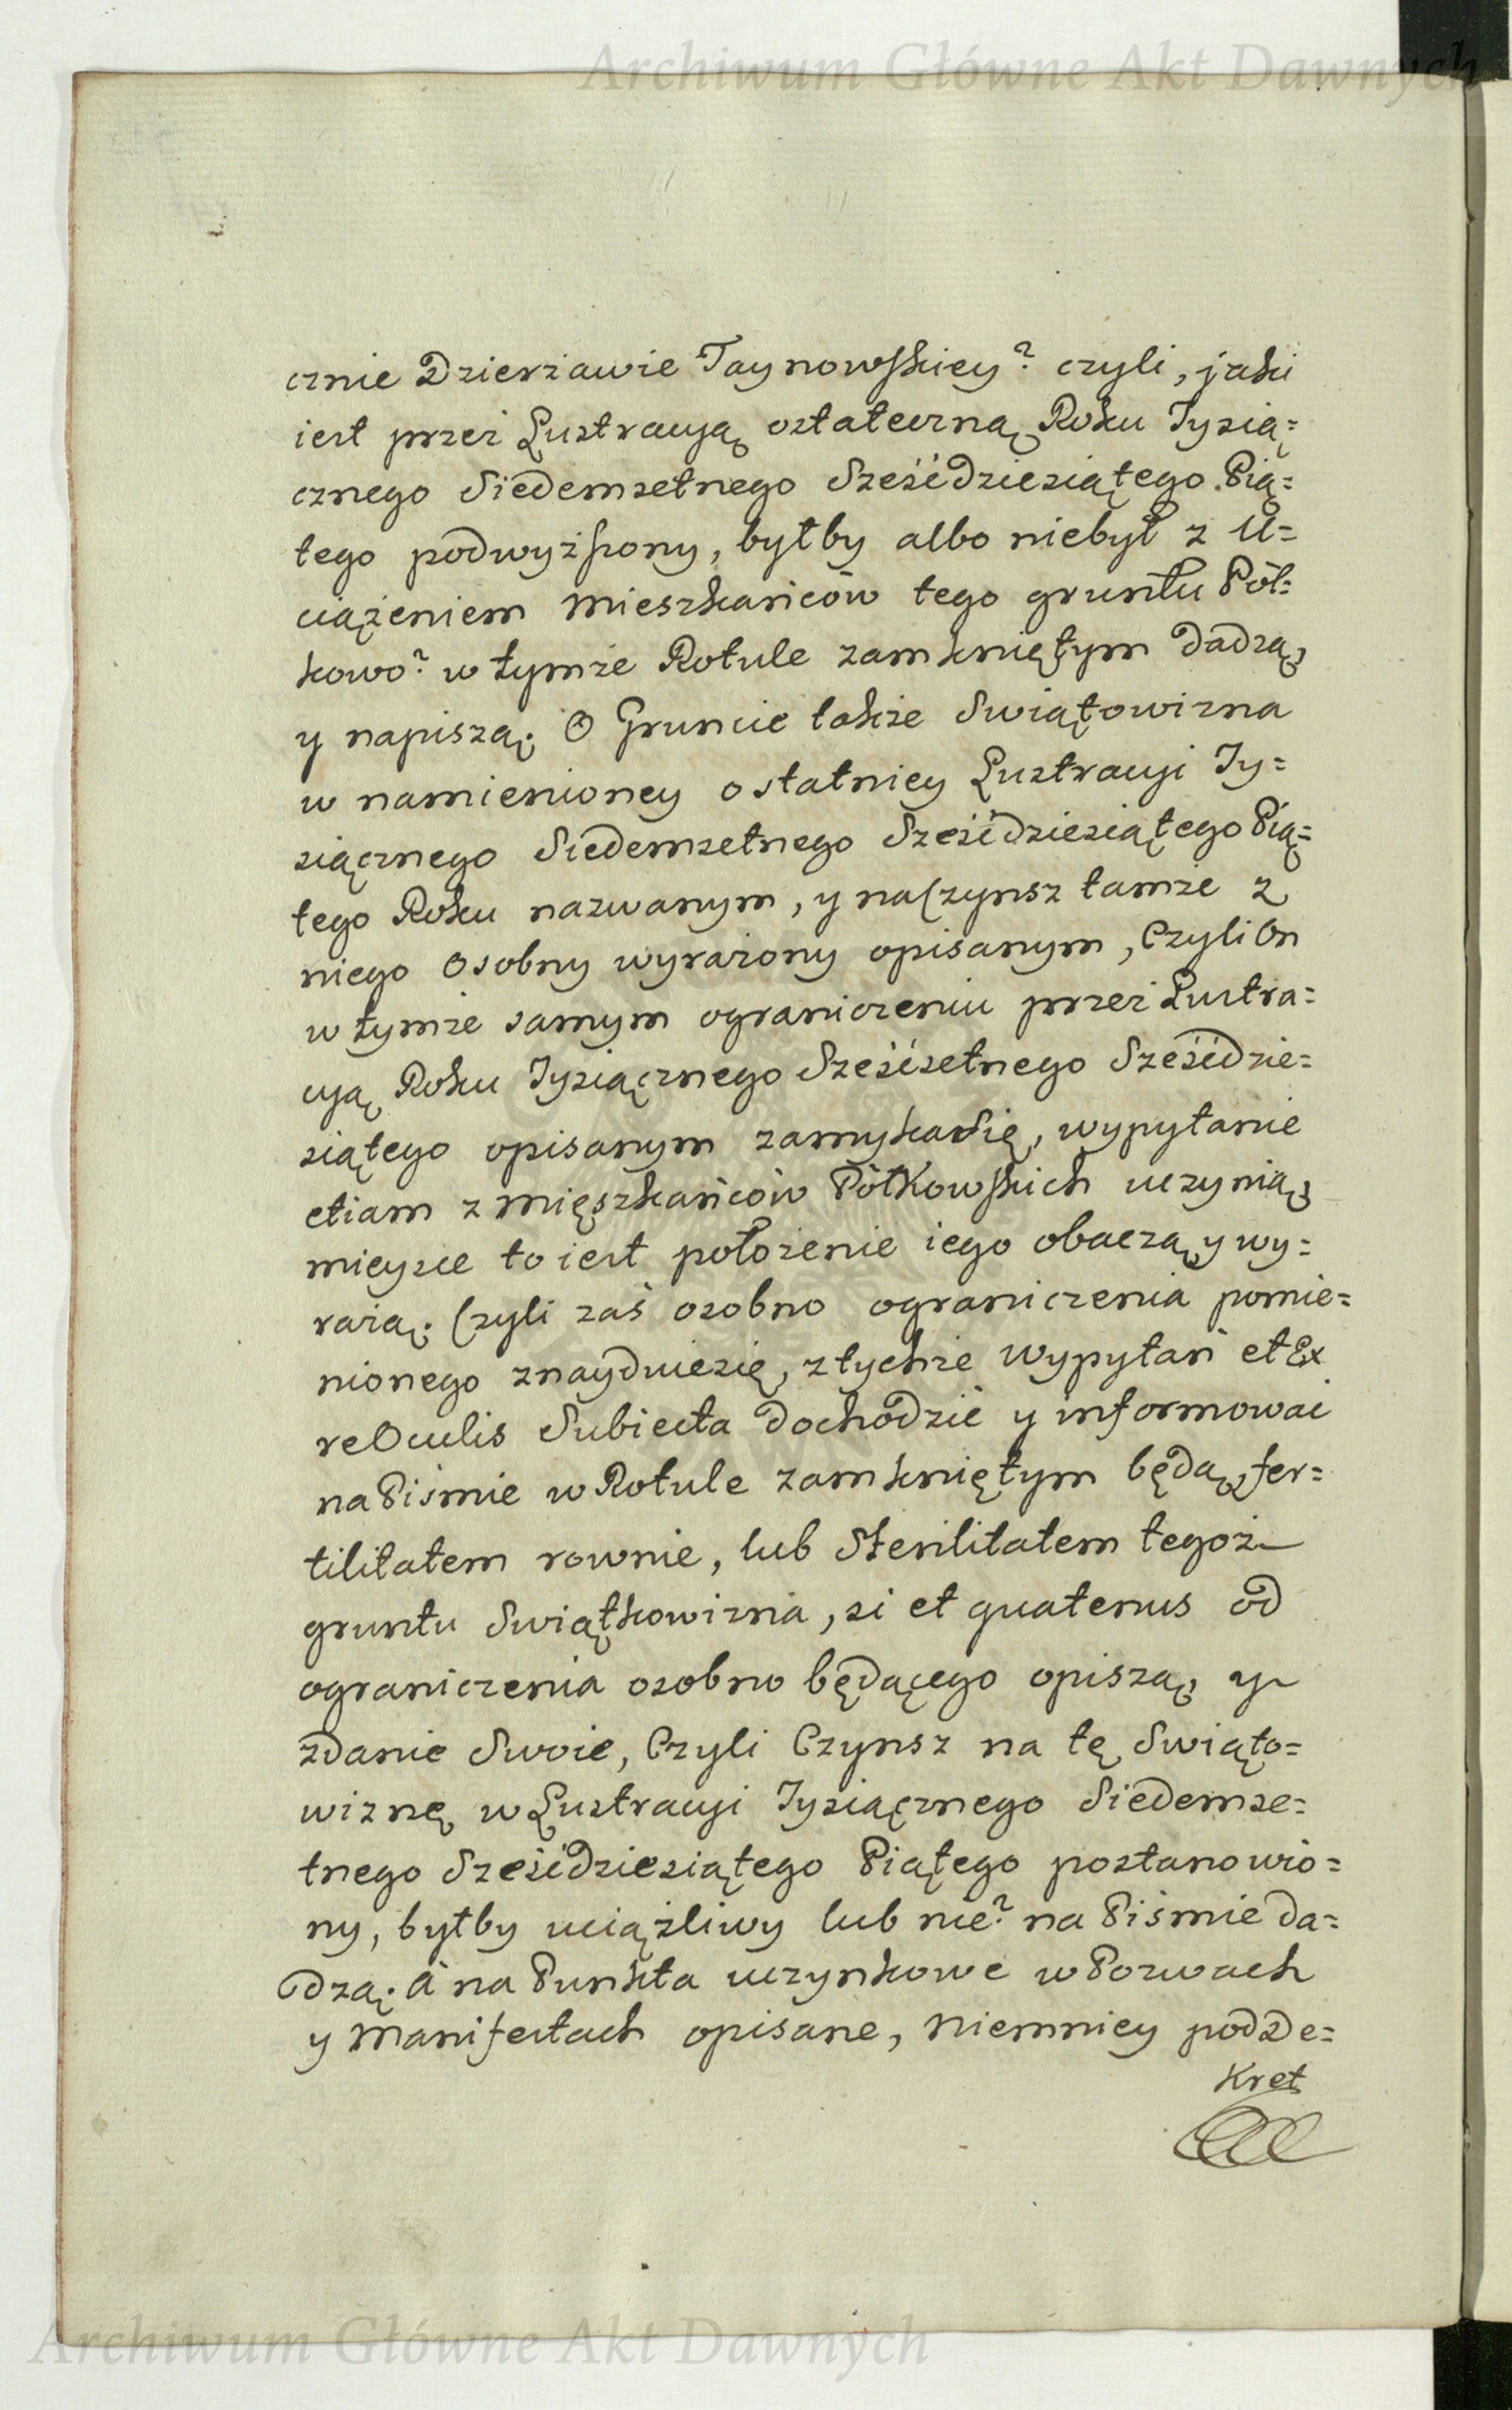 Archiwum Główne Akt Dawnych
cznie Dzierżawie Taynowskiey? czyli, jaki
iest przez Lustracyą ostateczną Roku Tysią=
cznego Siedemsetnego Sześćdziesiątego Pią=
tego podwyższony, byłby albo niebył z U=
ciążeniem Mieszkańców tego gruntu Pół=
kowo? w tymże Rotule zamkniętym dadzą,
y napiszą. O Gruncie także Swiątowizna
w namienioney ostatniey Lustracyi Ty=
siącznego Siedemsetnego Sześćdziesiątego Pią=
tego Roku nazwanym, y na Czynsz tamże z
niego osobny wyrażony opisanym, Czyli On
w tymże samym ograniczeniu przez Lustra=
cyą Roku Tysiącznego Sześćsetnego Sześćdzie=
siątego opisanym zamyka się, wypytanie
etiam z Mięszkańców Półkowskich uczynią,
mieysce to iest położenie iego obaczą, y wy=
rażą. Czyli zaś osobno ograniczenia pomie=
nionego znayduiesię, z tychże Wypytań et Ex
re Oculis Subiecta dochodzić y informować
na Piśmie w Rotule zamkniętym będą, fer=
tilitatem rownie, lub Sterilitatem tegoż
gruntu Swiątkowizna, si et quatenus od
ograniczenia osobno będącego opiszą, y
zdanie Swoie, Czyli Czynsz na tę Swiąto=
wiznę w Lustracyi Tysiącznego Siedemse=
tnego Sześćdziesiątego Piątego postanowio=
ny, byłby uciążliwy lub nie? na Piśmie da=
dzą. A na Punkta uczynkowe w Pozwach
y Manifestach opisane, Niemniey pod De=
kret
Archiwum Główne Akt Dawnych